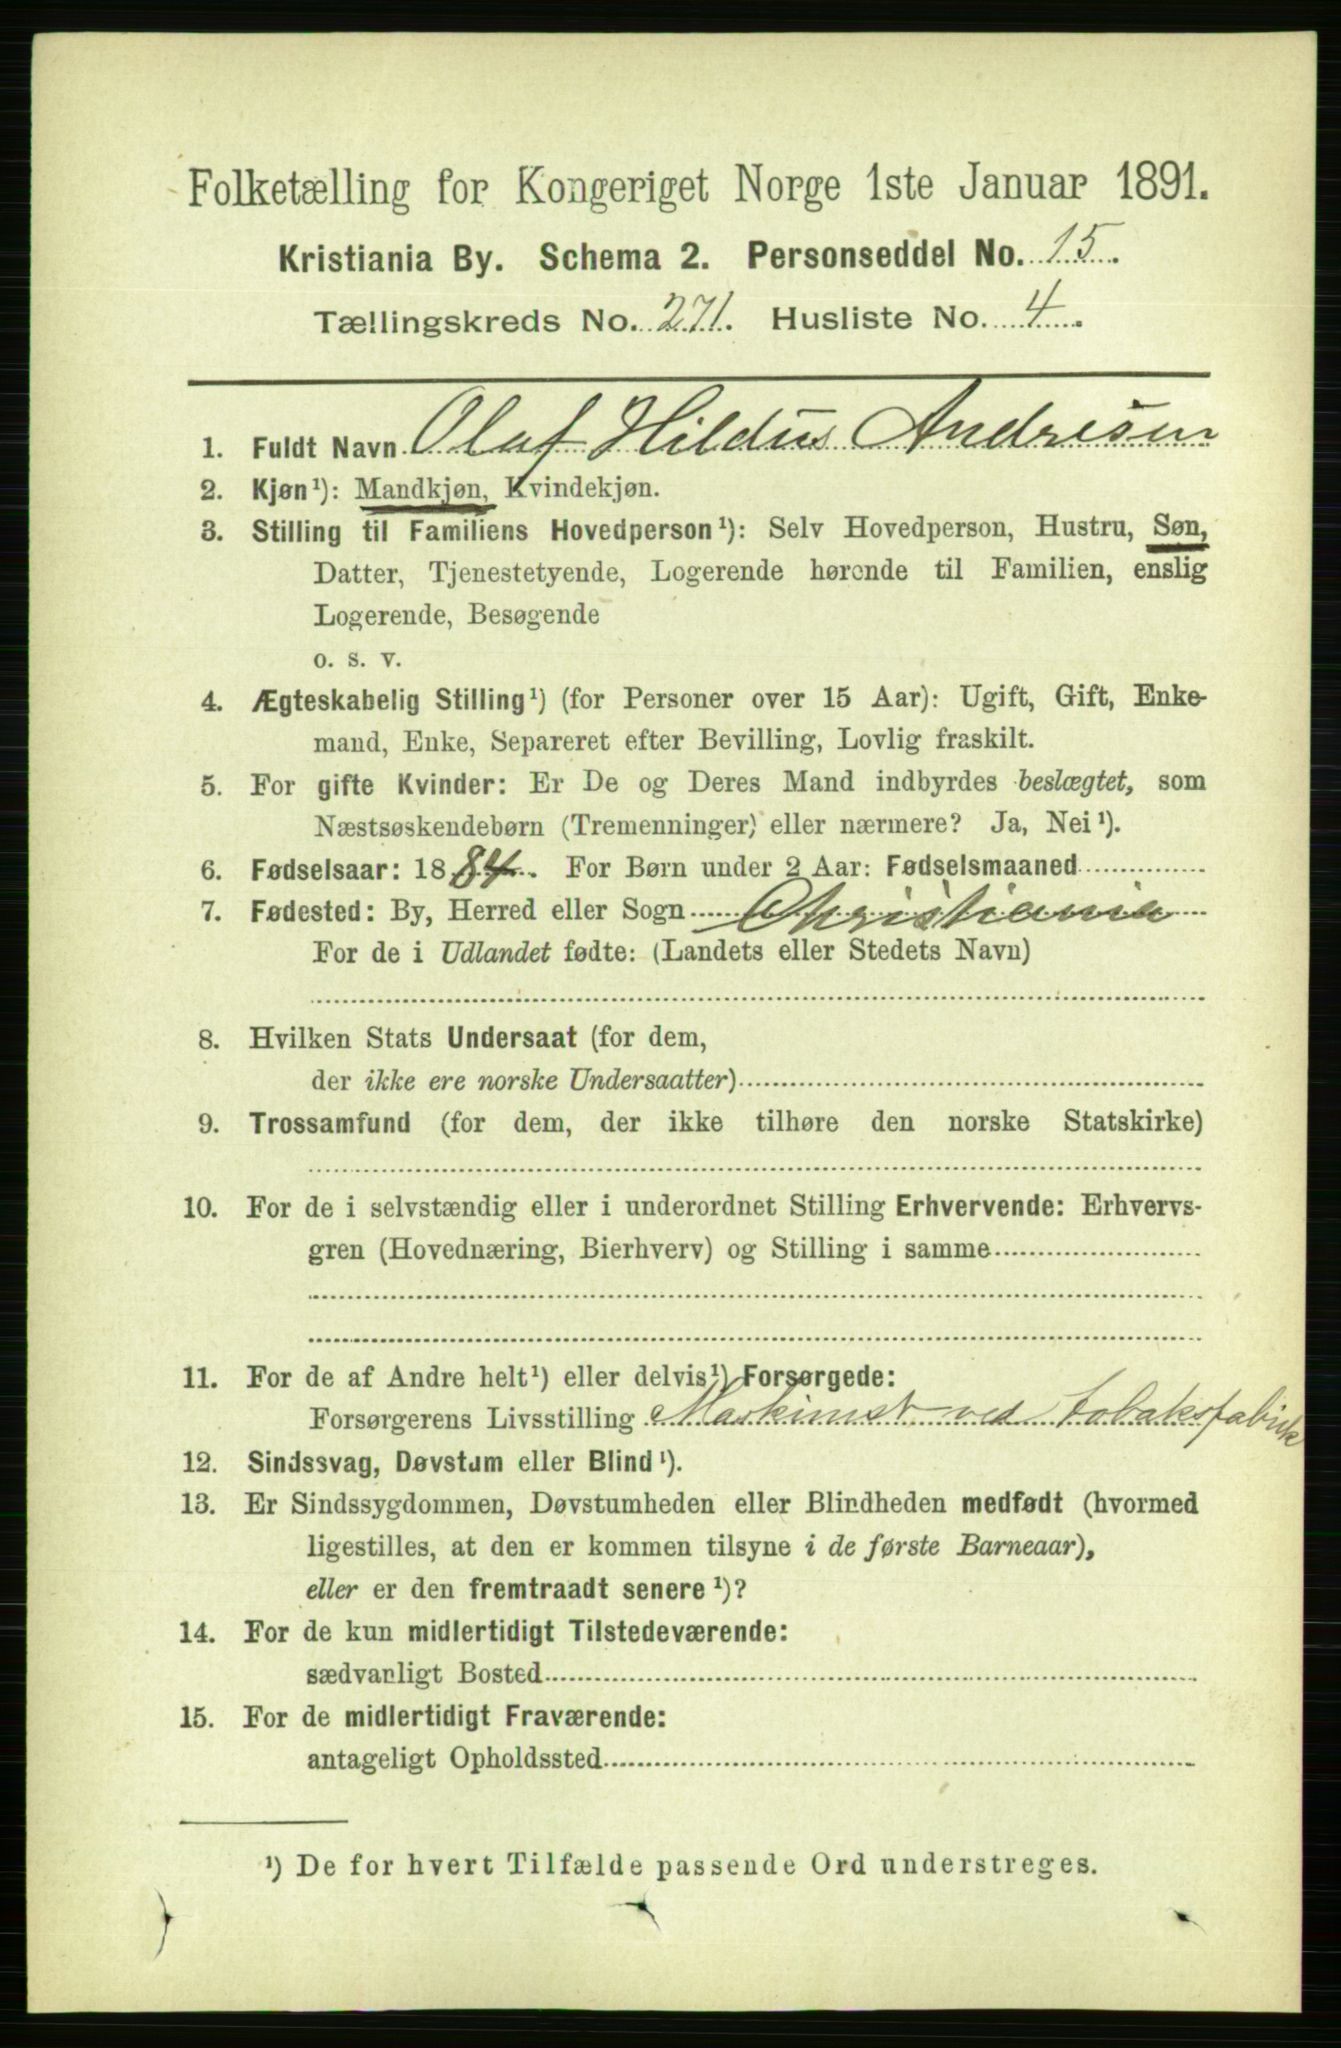 Folketælling for Kongeriget Norge 1ste Januar 1891.
Kristiania By. Schema 2. Personseddel No. 15.
Tællingskreds No. 271. Husliste No. 4.
1. Fuldt Navn Olaf Hildus Andresen
2. Kjøn¹): Mandkjøn, Kvindekjøn.
3. Stilling til Familiens Hovedperson¹): Selv Hovedperson, Hustru, Søn,
Datter, Tjenestetyende, Logerende hørende til Familien, enslig
Logerende, Besøgende
o. s. v.
4. Ægteskabelig Stilling¹) (for Personer over 15 Aar): Ugift, Gift, Enke-
mand, Enke, Separeret efter Bevilling, Lovlig fraskilt.
5. For gifte Kvinder: Er De og Deres Mand indbyrdes beslægtet, som
Næstsøskendebørn (Tremenninger) eller nærmere? Ja, Nei¹).
6. Fødselsaar: 1884. For Børn under 2 Aar: Fødselsmaaned
7. Fødested: By, Herred eller Sogn Christiania
For de i Udlandet fødte: (Landets eller Stedets Navn)
8. Hvilken Stats Undersaat (for dem,
der ikke ere norske Undersaatter)
9. Trossamfund (for dem, der ikke tilhøre den norske Statskirke)
10. For de i selvstændig eller i underordnet Stilling Erhvervende: Erhvervs-
gren (Hovednæring, Bierhverv) og Stilling i samme
11. For de af Andre helt¹) eller delvis¹) Forsørgede:
Forsørgerens Livsstilling Maskinist ved Tobaksfabrik
12. Sindssvag, Døvstum eller Blind¹).
13. Er Sindssygdommen, Døvstumheden eller Blindheden medfødt (hvormed
ligestilles, at den er kommen tilsyne i de første Barneaar),
eller er den fremtraadt senere¹)?
14. For de kun midlertidigt Tilstedeværende:
sædvanligt Bosted
15. For de midlertidigt Fraværende:
antageligt Opholdssted
¹) De for hvert Tilfælde passende Ord understreges.